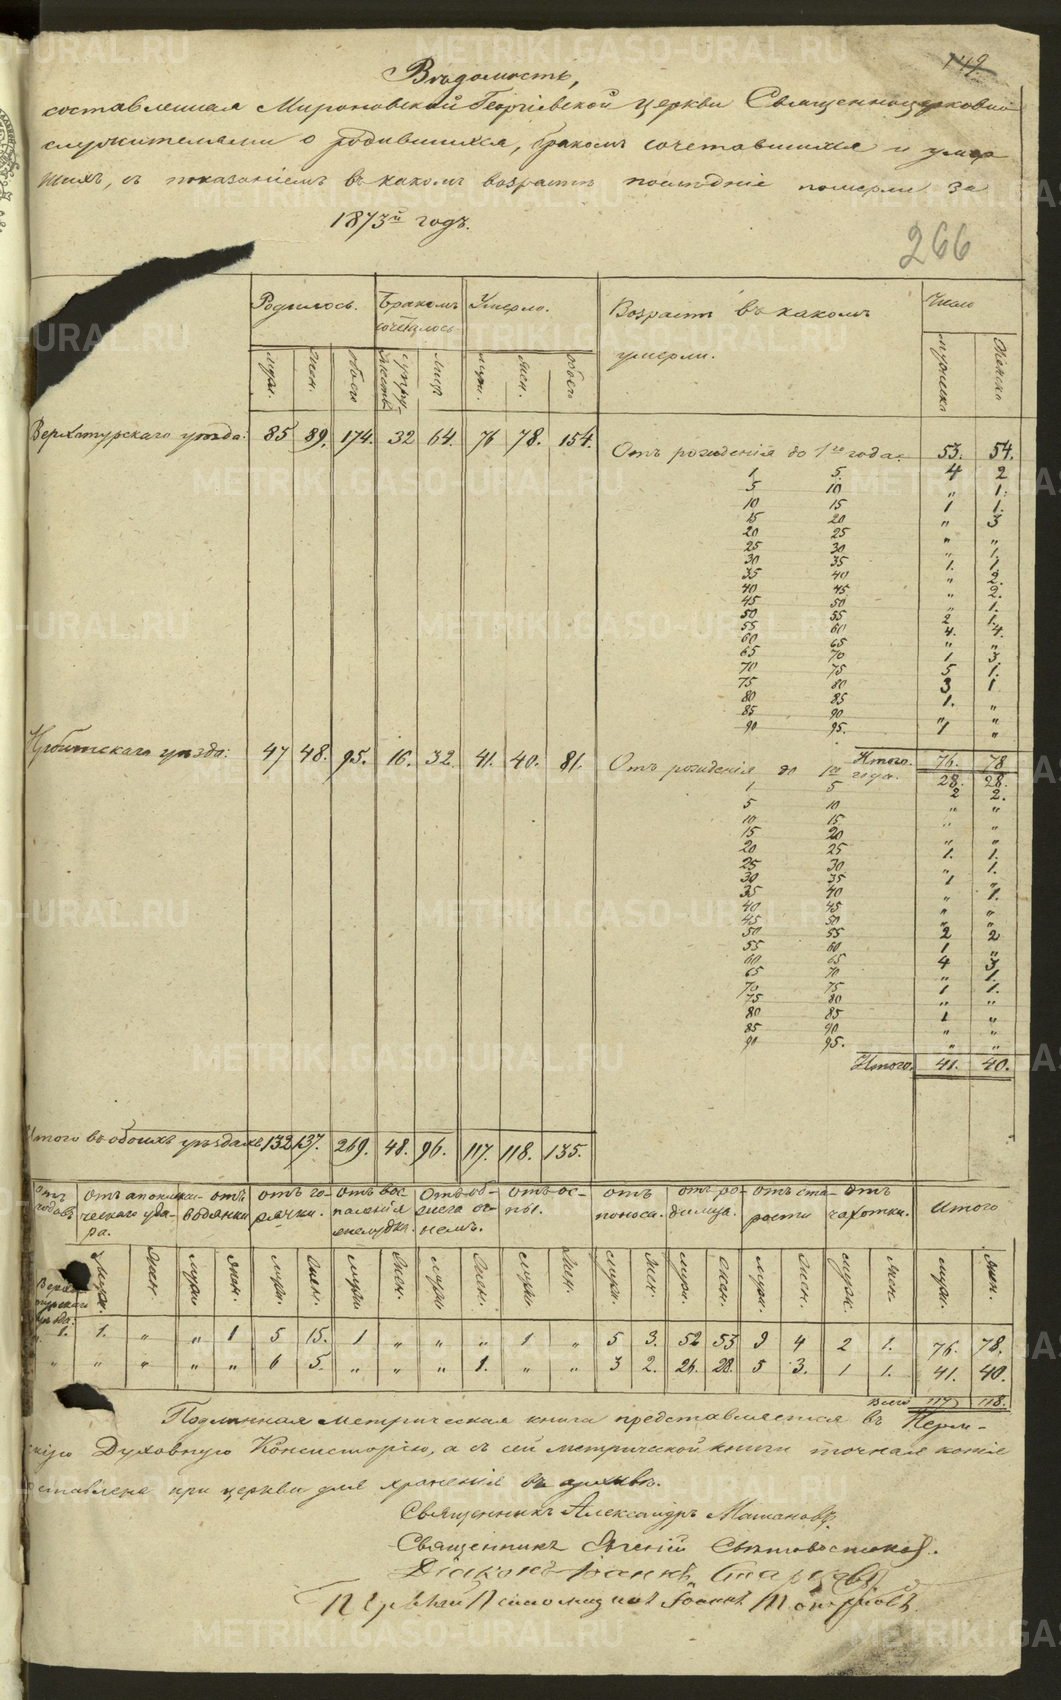 149
Вѣдомость,
составленная Мироновской Георгіевской церкви Священноцерковно
служителями о родившихся, бракомъ сочетавшихся и умер
шихъ, съ показаніемъ въ какомъ возрастѣ послѣдніе померли за
1873й годъ.
266
Родилось. Бракомъ сочеталось Умерло. Возрастъ въ какомъ умерли. Число
муж. жен. обоего супру-жествъ лицъ муж. жен. обоего мужеска женска
Верхотурскаго уѣзда: 85 89. 174. 32 64. 76 78. 154.
Отъ рожденія до 1го года: 53. 54.
1 5. 4 2
5 10 „ 1.
10 15 1 1.
15 20 „ 3
20 25 „ „
25 30 „ 1.
30 35 1. 1.
35 40 „ 2.
40 45 „ 2.
45 50 „ 1.
50 55 2 1.
55 60 4. 4.
60 65 „ „
65 70 1 3
70 75 5 1.
75 80 3 1
80 85 1. „
85 90 „ „
90 95. 1 „
Итого. 76. 78
Ирбитскаго уѣзда: 47 48. 95. 16. 32. 41. 40. 81.
Отъ рожденія до 1го года. 28. 28.
1 5 2 2.
5 10 „ „
10 15 „ „
15 20 „ „
20 25 1. 1.
25 30 „ 1.
30 35 1 „
35 40 „ 1.
40 45 „ „
45 50 „ „
50 55 2 2
55 60 1 „
60 65 4 3
65 70 „ 1.
70 75 1 1.
75 80 „ „
80 85 1 „
85 90 „ „
90 95. „ „
Итого. 41. 40.
Итого въ обоихъ уѣздахъ 132 137. 269. 48. 96. 117. 118. 135.
отъ родовъ отъ апоплексическаго удара. отъ водянки отъ горячки. отъ воспаленія желудка. отъ обжега огнемъ. отъ оспы. отъ поноса. отъ родимца. отъ старости отъ чахотки. Итого
муж. жен. муж. жен. муж. жен. муж. жен. муж. жен. муж. жен. муж. жен. муж. жен. муж. жен. муж. жен. муж. жен.
уѣзда:
1. 1. „ „ 1 5 15. 1 „ „ „ 1 „ 5 3. 52 53 9 4 2 1. 76. 78.
„ „ „ „ „ 6 5. „ „ „ 1. „ „ 3 2. 26. 28. 5 3. 1 1. 41. 40.
Всего 117 118.
Подлинная метрическая книга представляется въ Перм-
скую Духовную Консисторію, а съ сей метрической книги точная копія
оставлена при церкви для храненія въ архивѣ.
Священникъ Александръ Машановъ.
Священникъ Евгеній Свѣтовостоковъ.
Діаконъ Іоаннъ Старцевъ
Первый Псаломщикъ Іоаннъ
METRIKI.GASO-URAL.RU